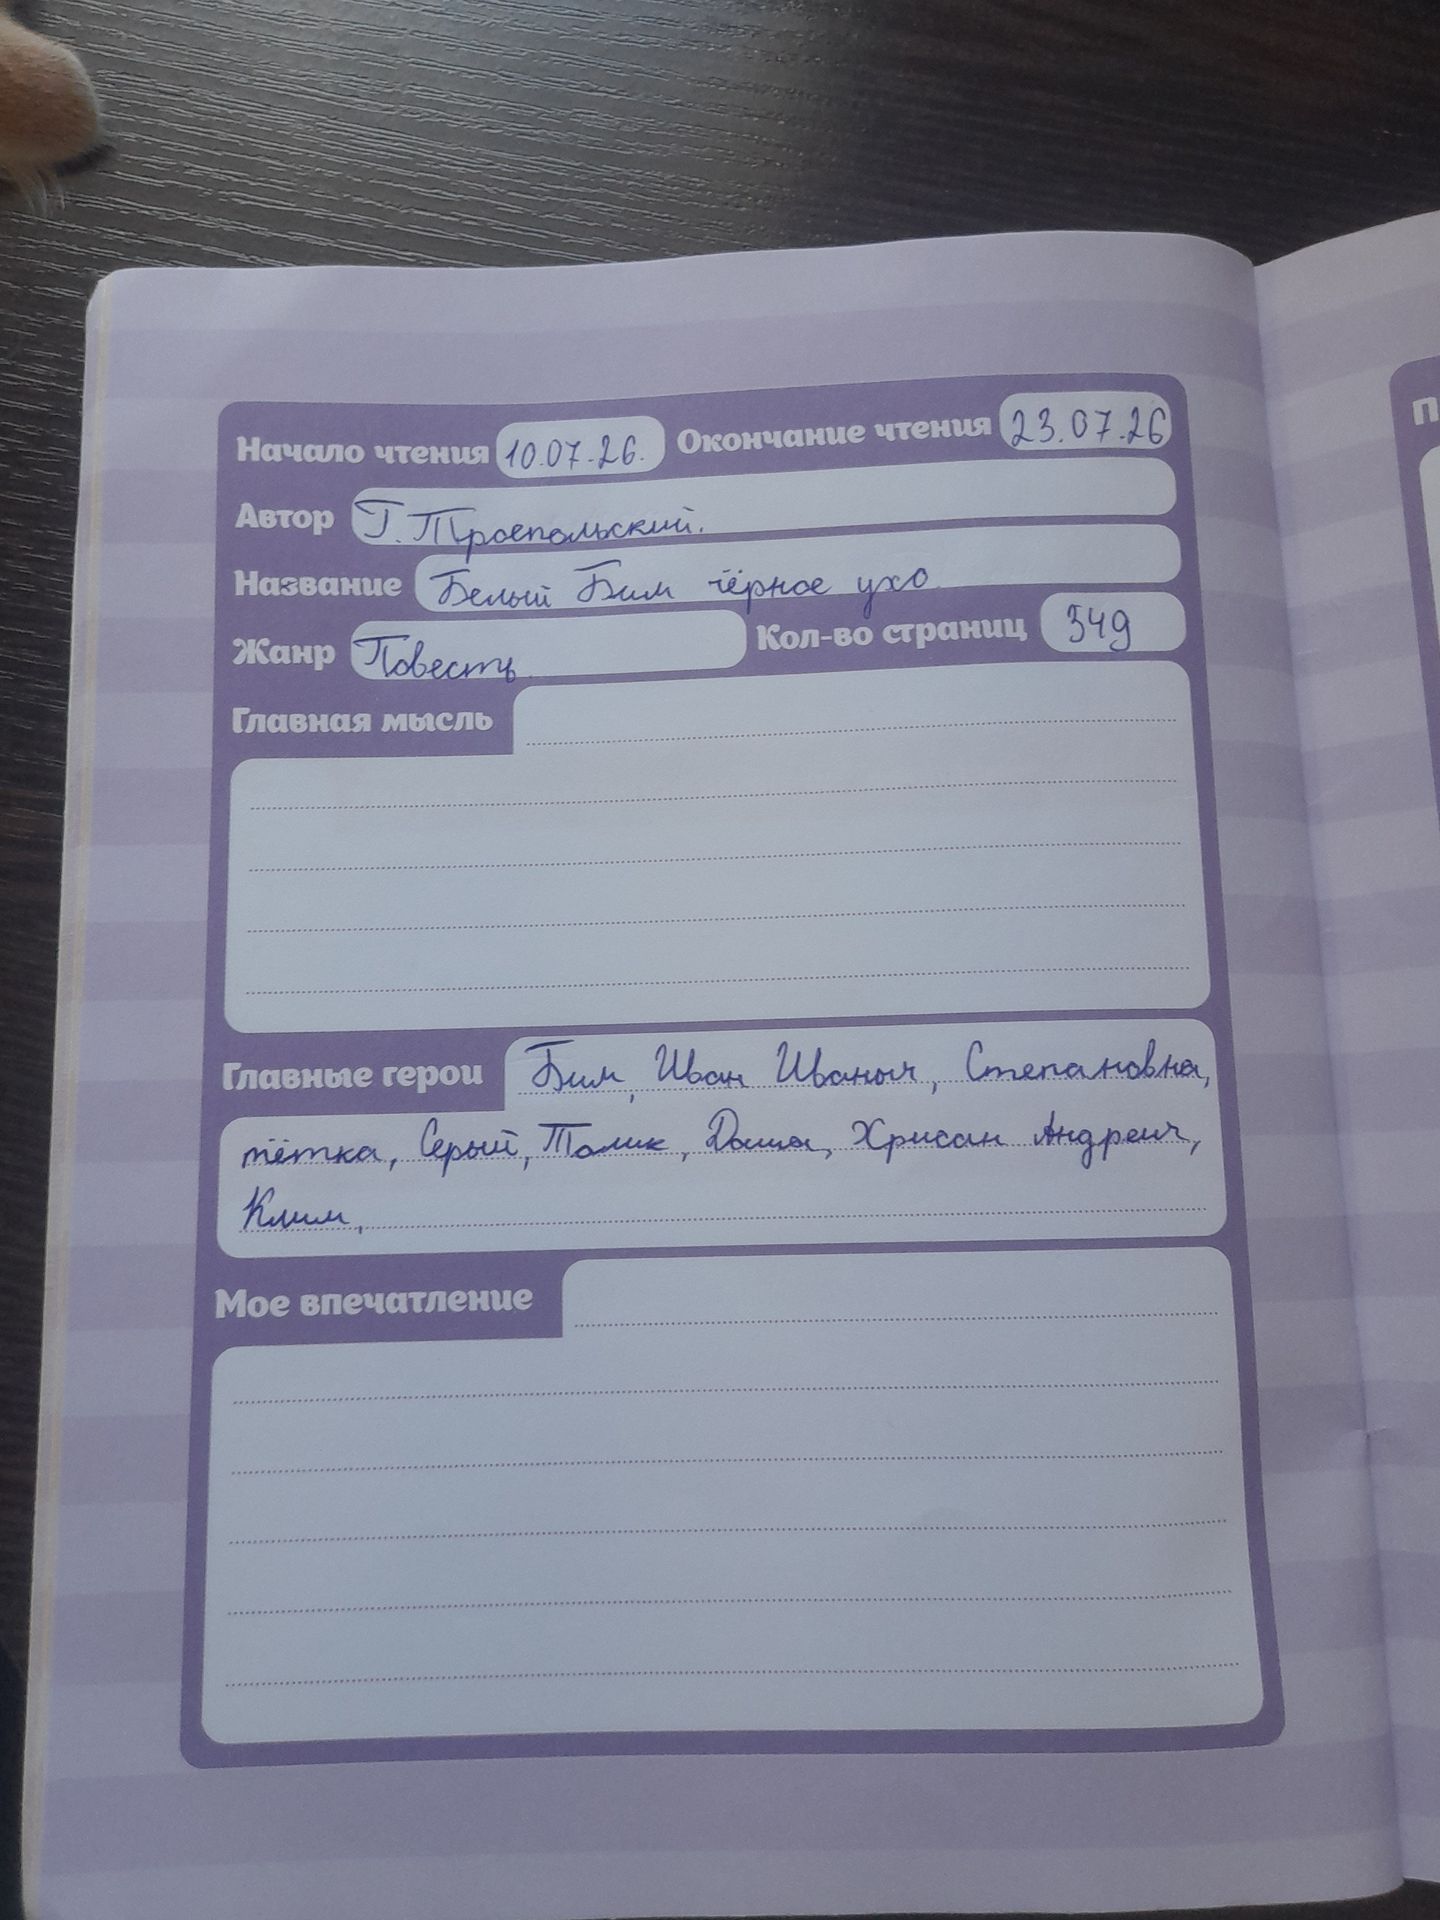 Начало чтения 10.07.26. Окончание чтения 23.07.26
Автор Г. Троепольский.
Название Белый Бим чёрное ухо
Жанр Повесть Кол-во страниц 349
Главная мысль
Главные герои Бим, Иван Иваныч, Степановна,
тётка, Серый, Толик, Даша, Хрисан Андреич,
Клим,
Мое впечатление
П